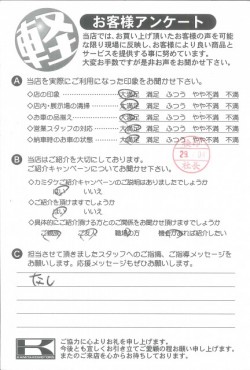 軽
お客様アンケート
当店では、お買い上げ頂いたお客様の声を可能
な限り現場に反映し、お客様により良い商品と
サービスを提供する事に努めています。
大変お手数ですが是非お声をお聞かせ下さい。
A 当店を実際にご利用になった印象をお聞かせ下さい。
◇店の印象 大満足 満足 ふつう やや不満 不満
◇店内・展示場の清掃 大満足 満足 ふつう やや不満 不満
◇お車の品揃え 大満足 満足 ふつう やや不満 不満
◇営業スタッフの対応 大満足 満足 ふつう やや不満 不満
◇納車時のお車の状態 大満足 満足 ふつう やや不満 不満
B 当店はご紹介を大切にしております。
ご紹介キャンペーンについてお聞かせ下さい。
◇カミタケご紹介キャンペーンのご説明はありましたでしょうか
はい いいえ
◇ご紹介を頂けますでしょうか
はい いいえ
◇具体的にご紹介頂ける方とのご関係をお聞かせ頂けますでしょうか
ご親戚 ご友人 職場の方 機会があれば紹介したい
C 担当させて頂きましたスタッフへのご指摘、ご指導メッセージを
お願いします。応援メッセージもぜひお願いします。
なし
K
ご協力に心よりお礼を申し上げます。
今後とも宜しくお引き立てご愛顧の程お願い申し上げます。
またのご来店を心からお待ちしております。